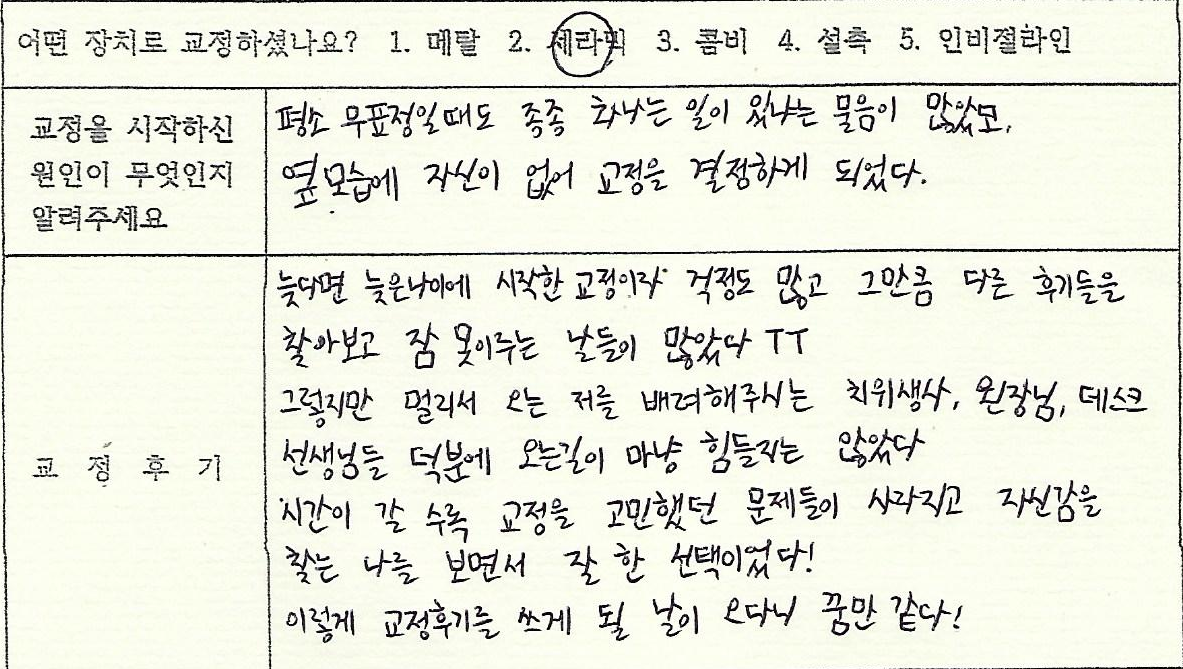 어떤 장치로 교정하셨나요? 1. 메탈 2. 세라믹 3. 콤비 4. 설측 5. 인비절라인
교정을 시작하신
원인이 무엇인지
알려주세요
평소 무표정일때도 종종 화나는 일이 있냐는 물음이 많았고,
옆모습에 자신이 없어 교정을 결정하게 되었다.
교 정 후 기
늦다면 늦은나이에 시작한 교정이라 걱정도 많고 그만큼 다른 후기들을
찾아보고 잠 못이루는 날들이 많았다 ㅜㅜ
그렇지만 멀리서 오는 저를 배려해주시는 치위생사, 원장님, 데스크
선생님들 덕분에 오는길이 마냥 힘들지는 않았다
시간이 갈 수록 교정을 고민했던 문제들이 사라지고 자신감을
찾는 나를 보면서 잘 한 선택이었다!
이렇게 교정후기를 쓰게 될 날이 오다니 꿈만 같다!